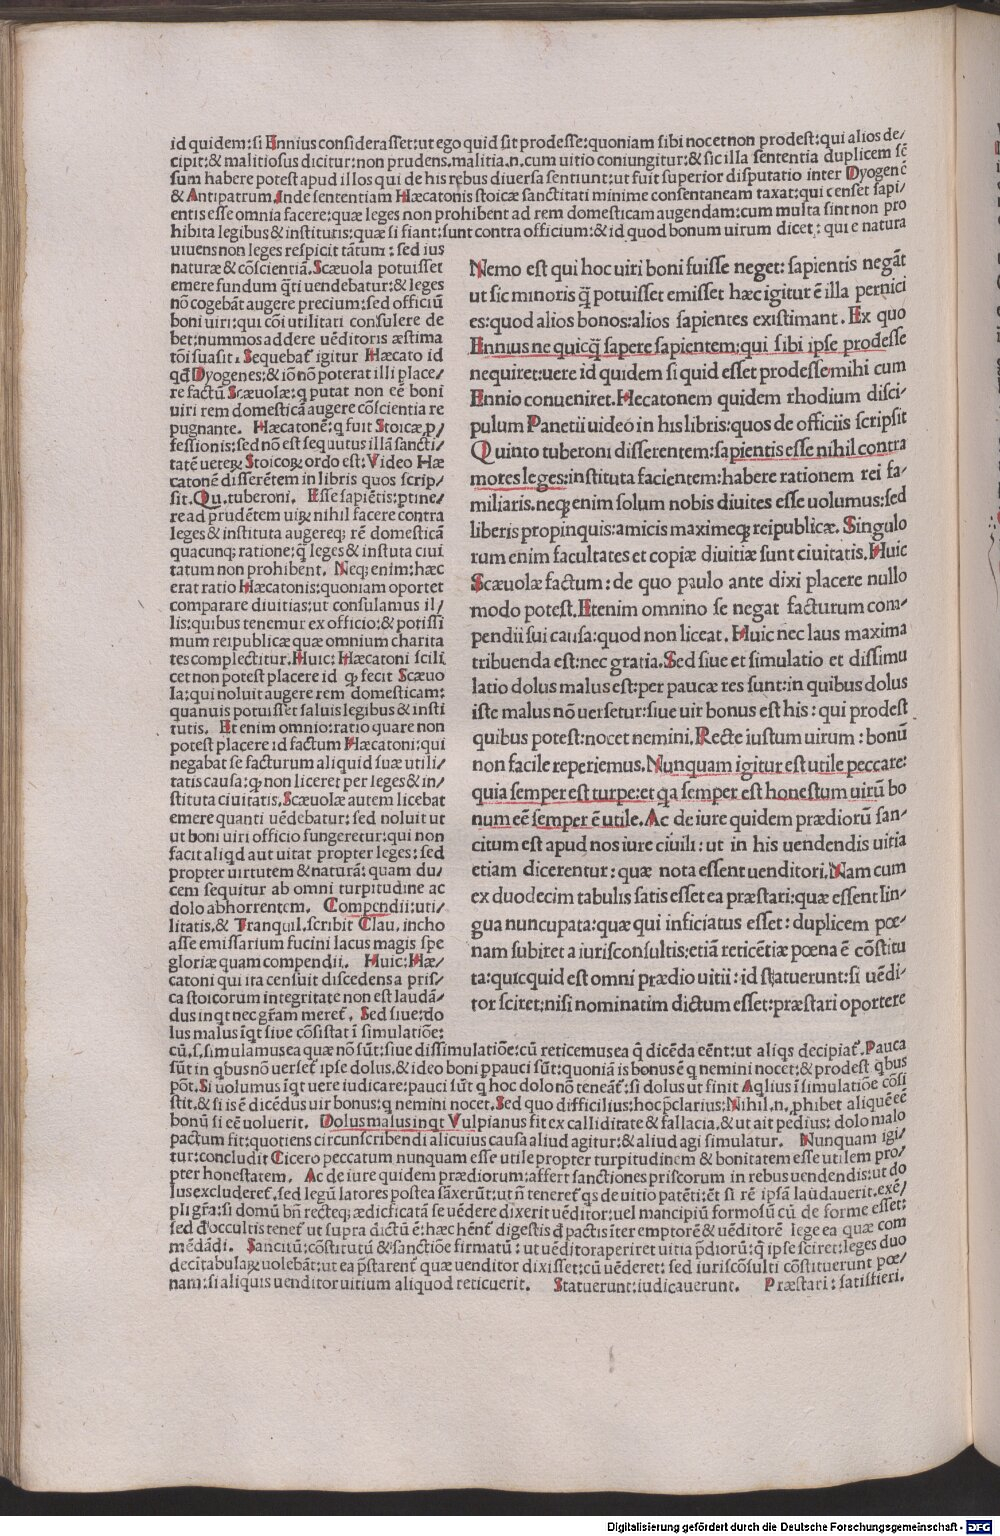 id quidem:si Ennius considerasset:ut ego quid sit prodesse:quoniam sibi nocet non prodest:qui alios de/
cipit:& malitiosus dicitur:non prudens.malitia.n.cum uitio coniungitur:& sic illa sententia duplicem sē
sum habere potest apud illos qui de his rebus diuersa sentiunt:ut fuit superior disputatio inter Dyogenē
& Antipatrum.Inde sententiam Hæcatonis stoicæ sanctitati minime consentaneam taxat:qui censet sapi/
entis esse omnia facere:quæ leges non prohibent ad rem domesticam augendam:cum multa sint non pro
hibita legibus & institutis:quæ si fiant:sunt contra officium:& id quod bonum uirum dicet: qui e natura
uiuens non leges respicit tātum: sed ius
naturæ & cōscientiā.Scæuola potuisset
emere fundum q̄ti uendebatur:& leges
nō cogebāt augere precium:sed officiū
boni uiri:qui cōi utilitati consulere de
bet:nummos addere uēditoris æstima
tōi suasit. Sequebat̄ igitur Hæcato id
qđ Dyogenes:& iō nō poterat illi place/
re factū Scæuolæ:q putat non eē boni
uiri rem domesticā augere cōscientia re
pugnante. Hæcatonē:q fuit Stoicæ ꝓ/
fessionis:sed nō est sequutus illā sancti/
tatē ueteꝝ Stoicoꝝ ordo est:Video Hæ
catonē disserētem in libris quos scrip/
sit.Qu.tuberoni. Esse sapiētis:ptine/
re ad prudētem uiꝝ nihil facere contra
leges & instituta augereq; rē domesticā
quacunq; ratione:q̄ leges & instuta ciui
tatum non prohibent. Neq; enim:hæc
erat ratio Hæcatonis:quoniam oportet
comparare diuitias:ut consulamus il/
lis:quibus tenemur ex officio:& potissi
mum reipublicæ quæ omnium charita
tes complectitur.Huic: Hæcatoni scili
cet non potest placere id ꝙ fecit Scæuo
la:qui noluit augere rem domesticam:
quanuis potuisset saluis legibus & insti
tutis. Et enim omnio:ratio quare non
potest placere id factum Hæcatoni:qui
negabat se facturum aliquid suæ utili/
tatis causa:ꝙ non liceret per leges & in/
stituta ciuitatis.Scæuolæ autem licebat
emere quanti uēdebatur: sed noluit ut
ut boni uiri officio fungeretur:qui non
facit aliqd aut uitat propter leges: sed
propter uirtutem & naturā: quam du/
cem sequitur ab omni turpitudine ac
dolo abhorrentem. Compendii:uti/
litatis,& Tranquil.scribit Clau.incho
asse emissarium fucini lacus magis spe
gloriæ quam compendii. Huic:Hæ/
catoni qui ita censuit discedens a pris/
ca stoicorum integritate non est laudā/
dus inqt nec gr̄am meret̄. Sed siue:do
lus malus īqt siue cōsistat ī simulatiōe:
Nemo est qui hoc uiri boni fuisse neget: sapientis negāt
ut sic minoris q̄ potuisset emisset hæc igitur ē illa pernici
es:quod alios bonos:alios sapientes existimant. Ex quo
Ennius ne quicq̄ sapere sapientem:qui sibi ipse prodesse
nequiret:uere id quidem si quid esset prodesse mihi cum
Ennio conueniret.Hecatonem quidem rhodium disci/
pulum Panetii uideo in his libris:quos de officiis scripsit
Quinto tuberoni disserentem:sapientis esse nihil contra
mores leges:instituta facientem:habere rationem rei fa/
miliaris.neq; enim solum nobis diuites esse uolumus:sed
liberis propinquis:amicis maximeq; reipublicæ. Singulo
rum enim facultates et copiæ diuitiæ sunt ciuitatis.Huic
Scæuolæ factum: de quo paulo ante dixi placere nullo
modo potest.Etenim omnino se negat facturum com/
pendii sui causa:quod non liceat. Huic nec laus maxima
tribuenda est:nec gratia.Sed siue et simulatio et dissimu
latio dolus malus est:per paucæ res sunt:in quibus dolus
iste malus nō uersetur:siue uir bonus est his: qui prodest
quibus potest:nocet nemini.Recte iustum uirum: bonū
non facile reperiemus.Nunquam igitur est utile peccare:
quia semper est turpe:et qa semper est honestum uirū bo
num eē semper ē utile. Ac de iure quidem prædiorū san/
citum est apud nos iure ciuili: ut in his uendendis uitia
etiam dicerentur: quæ nota essent uenditori.Nam cum
ex duodecim tabulis satis esset ea præstari:quæ essent lin/
gua nuncupata:quæ qui inficiatus esset: duplicem pœ/
nam subiret a iurisconsultis:etiā reticētiæ pœna ē cōstitu
ta:quicquid est omni prædio uitii: id statuerunt:si uēdi/
tor sciret:nisi nominatim dictum esset:præstari oportere
cū.s.simulamus ea quæ nō sūt:siue dissimulatiōe:cū reticemus ea q̄ dicēda cēnt:ut aliqs decipiat̄.Pauca
sūt in qbus nō uerset̄ ipse dolus.& ideo boni ppauci sūt:quoniā is bonus ē q nemini nocet:& prodest qbus
pōt.Si uolumus īqt uere iudicare:pauci sūt q hoc dolo nō teneāt̄:si dolus ut finit Aqlius ī simulatiōe cōsi
stit.& si is ē dicēdus uir bonus:q nemini nocet.Sed quo difficilius:hoc p̄clarius:Nihil.n.phibet aliquē eē
bonū si eē uoluerit. Dolus malus inqt Vulpianus fit ex calliditate & fallacia,& ut ait pedius: dolo malo
pactum fit:quotiens circunscribendi alicuius causa aliud agitur:& aliud agi simulatur. Nunquam igi/
tur:concludit Cicero peccatum nunquam esse utile propter turpitudinem & bonitatem esse utilem pro/
pter honestatem. Ac de iure quidem prædiorum:affert sanctiones priscorum in rebus uendendis:ut do
lus excluderet̄.sed legū latores postea sāxerūt:ut n̄ teneret̄ qs de uitio patēti:ēt si rē ipsā laudauerit.exē/
pli gr̄a:si domū bn̄ recteq; ædificatā se uēdere dixerit uēditor:uel mancipiū formosū cū de forme esset:
sed đ occultis tenet̄ ut supra dictū ē:hæc hēnt̄ digestis đ pactis īter emptorē & uēditorē lege ea quæ com
mēdādi. Sancitū:cōstitutū & sanctiōe firmatū: ut uēditor aperiret uitia p̄diorū:q̄ ipse sciret:leges duo
decī tabulaꝝ uolebāt:ut ea p̄starent̄ quæ uenditor dixisset:cū uēderet: sed iuriscōsulti cōstituerunt pœ/
nam:si aliquis uenditor uitium aliquod reticuerit. Statuerunt:iudicauerunt. Præstari: satisfieri.
Digitalisierung gefördert durch die Deutsche Forschungsgemeinschaft - DFG